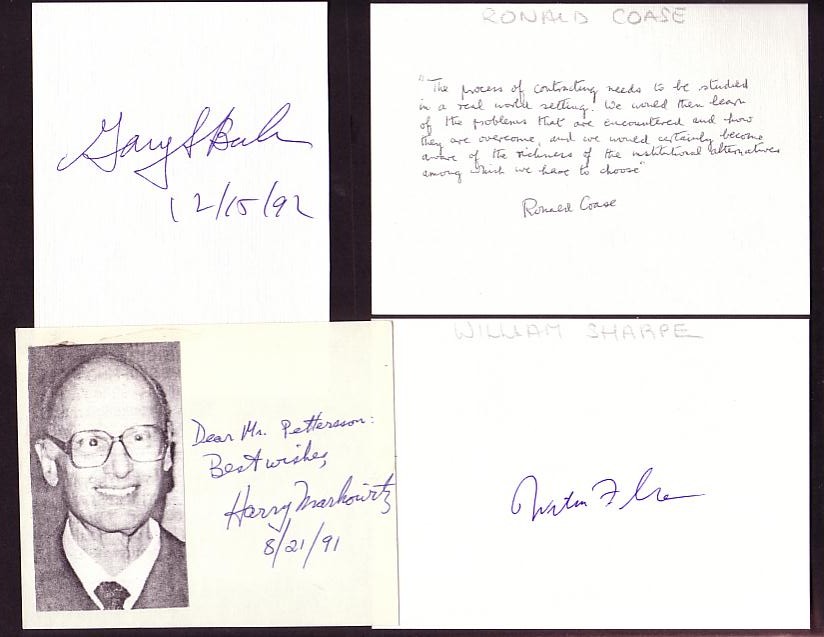 Gary S Becker
12/15/92
RONALD COASE
"The process of contracting needs to be studied
in a real world setting. We would then learn
of the problems that are encountered and how
they are overcome, and we would certainly become
aware of the richness of the institutional alternatives
among which we have to choose"
Ronald Coase
Dear Mr. Pettersson:
Best wishes,
Harry Markowitz
8/21/91
WILLIAM SHARPE